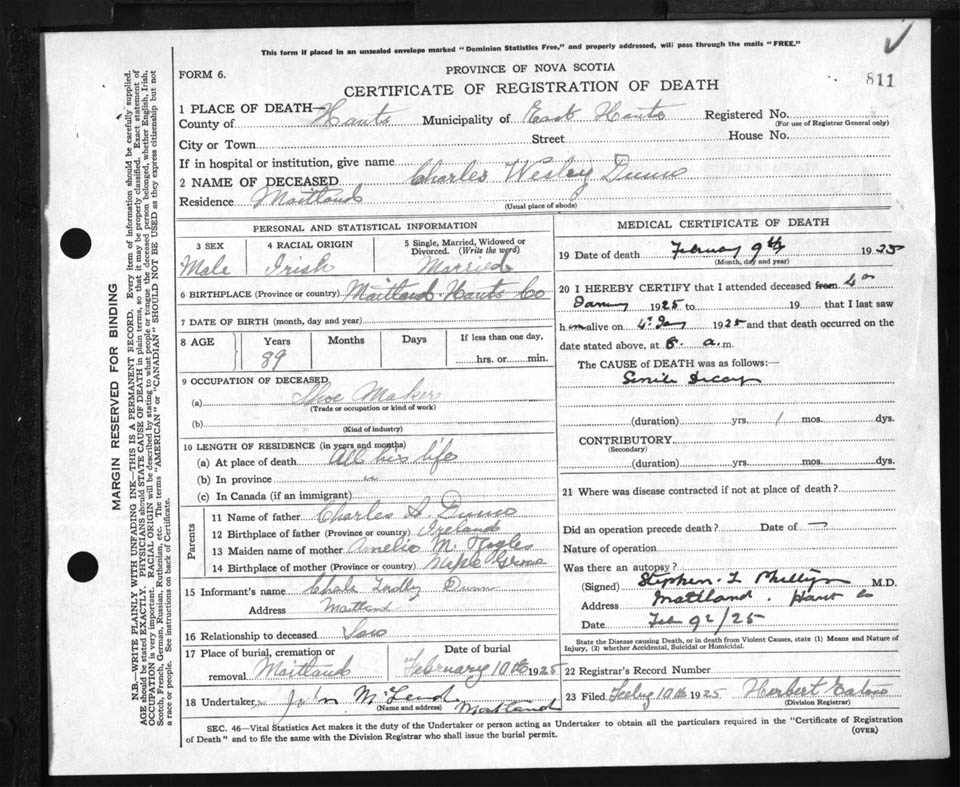 This form if placed in an unsealed envelope marked "Dominion Statistics Free," and properly addressed, will pass through the mails "FREE."
FORM 6.
PROVINCE OF NOVA SCOTIA
811
CERTIFICATE OF REGISTRATION OF DEATH
1 PLACE OF DEATH—
County of Hants Municipality of East Hants Registered No.
(For use of Registrar General only)
City or Town Street House No.
If in hospital or institution, give name
2 NAME OF DECEASED Charles Wesley Dunn
Residence Maitland
(Usual place of abode)
PERSONAL AND STATISTICAL INFORMATION
3 SEX 4 RACIAL ORIGIN 5 Single, Married, Widowed or Divorced. (Write the word)
Male Irish Married
6 BIRTHPLACE (Province or country) Maitland Hants Co
7 DATE OF BIRTH (month, day and year)
8 AGE Years Months Days If less than one day,
89 hrs. or min.
9 OCCUPATION OF DECEASED
(a) Shoe Maker
(Trade or occupation or kind of work)
(b)
(Kind of industry)
10 LENGTH OF RESIDENCE (in years and months)
(a) At place of death All his life
(b) In province "
(c) In Canada (if an immigrant)
Parents
11 Name of father Charles A Dunn
12 Birthplace of father (Province or country) Ireland
13 Maiden name of mother Amelia M
14 Birthplace of mother (Province or country) Maple Grove
15 Informant's name Dunn
Address Maitland
16 Relationship to deceased Son
17 Place of burial, cremation or removal Maitland
Date of burial
February 10th 1925
18 Undertaker John McLeod Maitland
(Name and address)
MEDICAL CERTIFICATE OF DEATH
19 Date of death February 9th 1925
(Month, day and year)
20 I HEREBY CERTIFY that I attended deceased from 4th
January 1925 to 19 that I last saw
him alive on 4th Jany 1925 and that death occurred on
date stated above, at 8. a.m.
The CAUSE OF DEATH was as follows:
Senile Decay
(duration) yrs. 1 mos. dys.
CONTRIBUTORY
(Secondary)
(duration) yrs. mos. dys.
21 Where was disease contracted if not at place of death?
Did an operation precede death? Date of —
Nature of operation
Was there an autopsy?
(Signed) Stephen M.D.
Address Maitland. Hants Co
Date Feb 9th/25
State the Disease causing Death, or in death from Violent Causes, state (1) Means and Nature of Injury, (2) whether Accidental, Suicidal or Homicidal.
22 Registrar's Record Number
23 Filed Feby 10th 1925 Herbert Eaton
(Division Registrar)
SEC. 46—Vital Statistics Act makes it the duty of the Undertaker or person acting as Undertaker to obtain all the particulars required in the "Certificate of Registration
of Death" and to file the same with the Division Registrar who shall issue the burial permit.
(OVER)
MARGIN RESERVED FOR BINDING
N.B.—WRITE PLAINLY WITH UNFADING INK—THIS IS A PERMANENT RECORD. Every item of information should be carefully supplied.
AGE should be stated EXACTLY. PHYSICIANS should STATE CAUSE OF DEATH in plain terms, so that it may be properly classified. Exact statement of
OCCUPATION is very important. RACIAL ORIGIN will be described by stating to what people or tongue the deceased person belonged, whether English, Irish,
Scotch, French, German, Russian, Ruthenian, etc. The terms "AMERICAN" or "CANADIAN" SHOULD NOT BE USED as they express citizenship but not
a race or people. See instructions on back of Certificate.